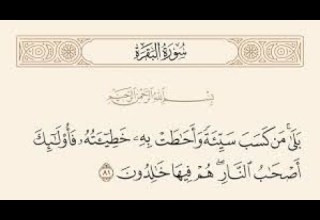 سُورَةُ البَقَرَةِ
بِسْمِ اللَّهِ الرَّحْمَٰنِ الرَّحِيمِ
بَلَىٰ مَن كَسَبَ سَيِّئَةً وَأَحَاطَتْ بِهِۦ خَطِيٓـَٔتُهُۥ فَأُو۟لَٰٓئِكَ
أَصْحَٰبُ النَّارِ ۖ هُمْ فِيهَا خَٰلِدُونَ ٨١